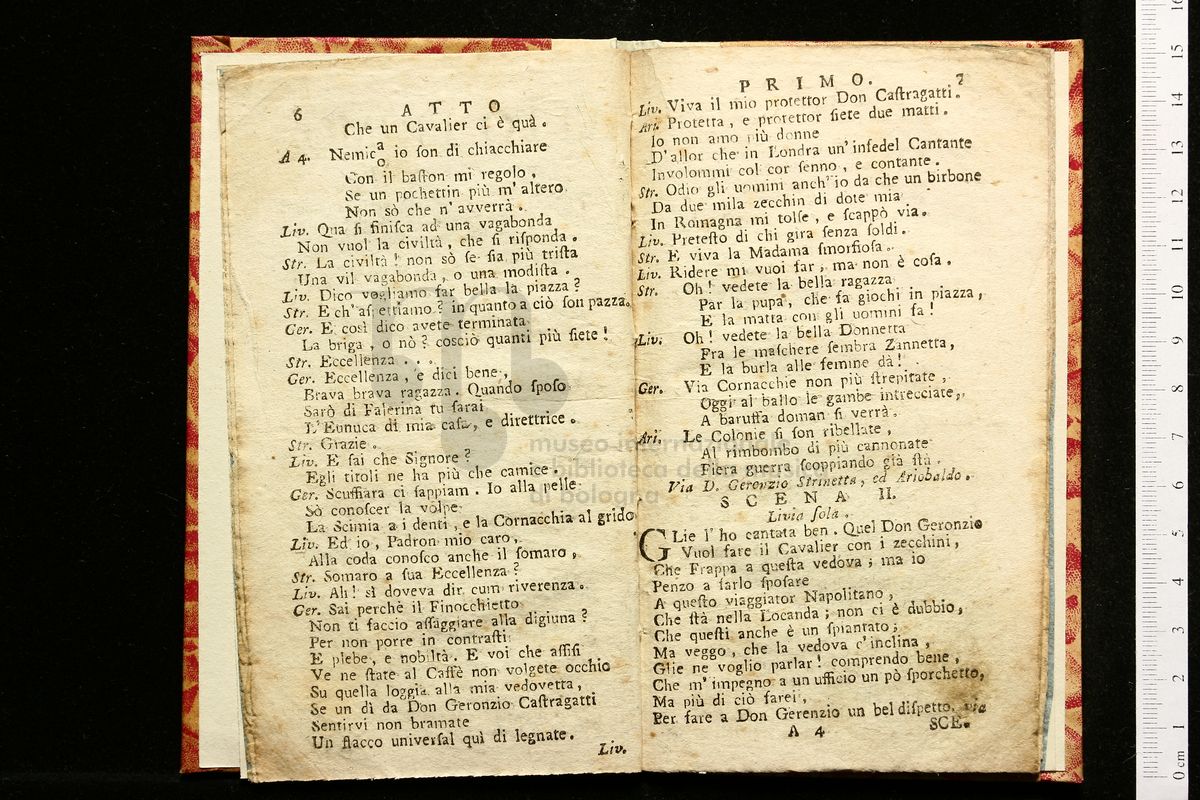 6 ATTO
Che un Cavalier ci è quà.
A 4. Nemica/o io ſon di chiacchiare
Con il baſton mi regolo,
Se un pochettin più m' altero
Non sò che n' avverrà.
Liv. Qua ſi finiſca ad una vagabonda
Non vuol la civiltà, che ſi riſponda.
Str. La civiltà! non sò ſe ſia più triſta
Una vil vagabonda, o una modiſta.
Liv. Dico vogliamo far bella la piazza?
Str. E ch' aſpettiamo? in quanto a ciò ſon pazza.
Ger. E così dico avete terminata
La briga, o nò? coſciò quanti più ſiete!
Str. Eccellenza...
Ger. Eccellenza, e dici bene,
Brava brava ragazza. Quando ſpoſo
Sarò di Falerina tu ſarai
L'Eunuca di mia caſa, e direttrice.
Str. Grazie.
Liv. E ſai che Signore?
Egli titoli ne ha più che camice.
Ger. Scuffiara ci ſappiam. Io alla pelle
Sò conoſcer la volpe
La Scimia a i denti, e la Cornacchia al grido
Liv. Ed io, Padron mio caro,
Alla coda conoſco anche il ſomaro,
Str. Somaro a ſua Eccellenza?
Liv. Ah! sì doveva dir cum riverenza.
Ger. Sai perchè il Finocchietto
Non ti faccio aſſaggiare alla digiuna?
Per non porre in contraſti
E plebe, e nobiltà. E voi che aſſiſi
Ve ne ſtate al Caffè non volgete occhio
Su quella loggia alla mia vedovetta,
Se un dì da Don Geronzio Caſtragatti
Sentirvi non bramate
Un fiacco univerſal quì di legnate.
Liv.
PRIMO. 7
Liv. Viva il mio protettor Don Caſtragatti.
Ari. Protetta, e protettor ſiete due matti.
Io non amo più donne
D'allor che in Londra un' infedel Cantante
Involommi col cor ſenno, e contante.
Str. Odio gli uomini anch' io da che un birbone
Da due mila zecchin di dote mia
In Romagna mi tolſe, e ſcappò via.
Liv. Preteſto di chi gira ſenza ſoldi.
Str. E viva la Madama ſmorfioſa.
Liv. Ridere mi vuoi far, ma non è coſa.
Str. Oh! vedete la bella ragazza
Par la pupa, che fa giochi in piazza,
E la matta con gli uomini fa!
Liv. Oh! vedete la bella Donnetta
Fra le maſchere ſembra Zannetta,
E la burla alle femine dà!
Ger. Via Cornacchie non più ſtrepitate,
Oggi al ballo le gambe intrecciate,
A baruffa doman ſi verrà.
Ari. Le Colonie ſi ſon ribellate,
Al rimbombo di più cannonate
Fiera guerra ſcoppiando già ſtà.
Via D. Geronzio Strinetta, ed Ariobaldo.
SCENA II.
Livia ſola.
GLie l' ho cantata ben. Quel Don Geronzio
Vuol fare il Cavalier con i zecchini,
Che Frappa a queſta vedova; ma io
Penzo a farlo ſpoſare
A queſto viaggiator Napolitano,
Che ſtà nella Locanda; non ci è dubbio,
Che queſti anche è un ſpiantato;
Ma veggo, che la vedova c' inclina,
Glie ne voglio parlar! comprendo bene,
Che m' impegno a un ufficio un pò ſporchetto,
Ma più di ciò farei,
Per fare a Don Gerenzio un bel diſpetto. via
A 4 SCE.
museo internazionale
biblioteca della musica
di bologna